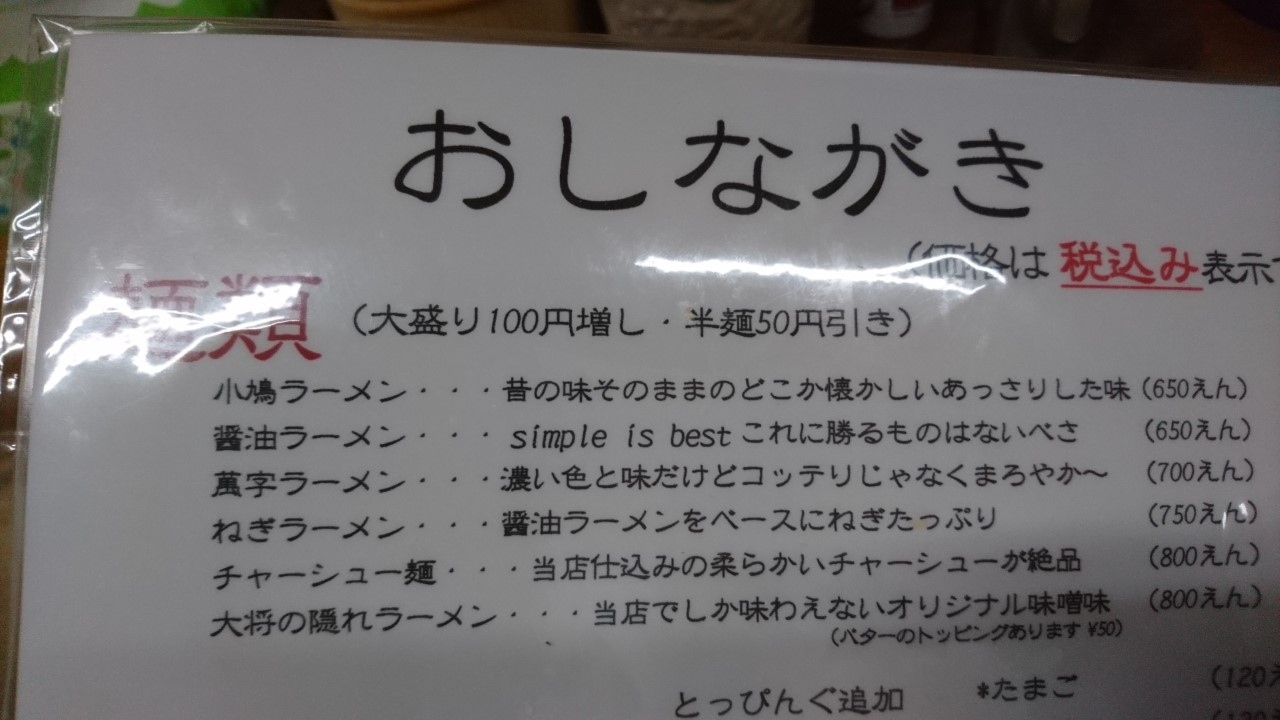 おしながき
(価格は 税込み表示
麺類 (大盛り100円増し・半麺50円引き)
小鳩ラーメン・・・昔の味そのままのどこか懐かしいあっさりした味 (650えん)
醤油ラーメン・・・ simple is best これに勝るものはないべさ (650えん)
萬字ラーメン・・・濃い色と味だけどコッテリじゃなくまろやか～ (700えん)
ねぎラーメン・・・醤油ラーメンをベースにねぎたっぷり (750えん)
チャーシュー麺・・・当店仕込みの柔らかいチャーシューが絶品 (800えん)
大将の隠れラーメン・・・当店でしか味わえないオリジナル味噌味 (800えん)
(バターのトッピングあります ¥50)
とっぴんぐ追加 *たまご (120え